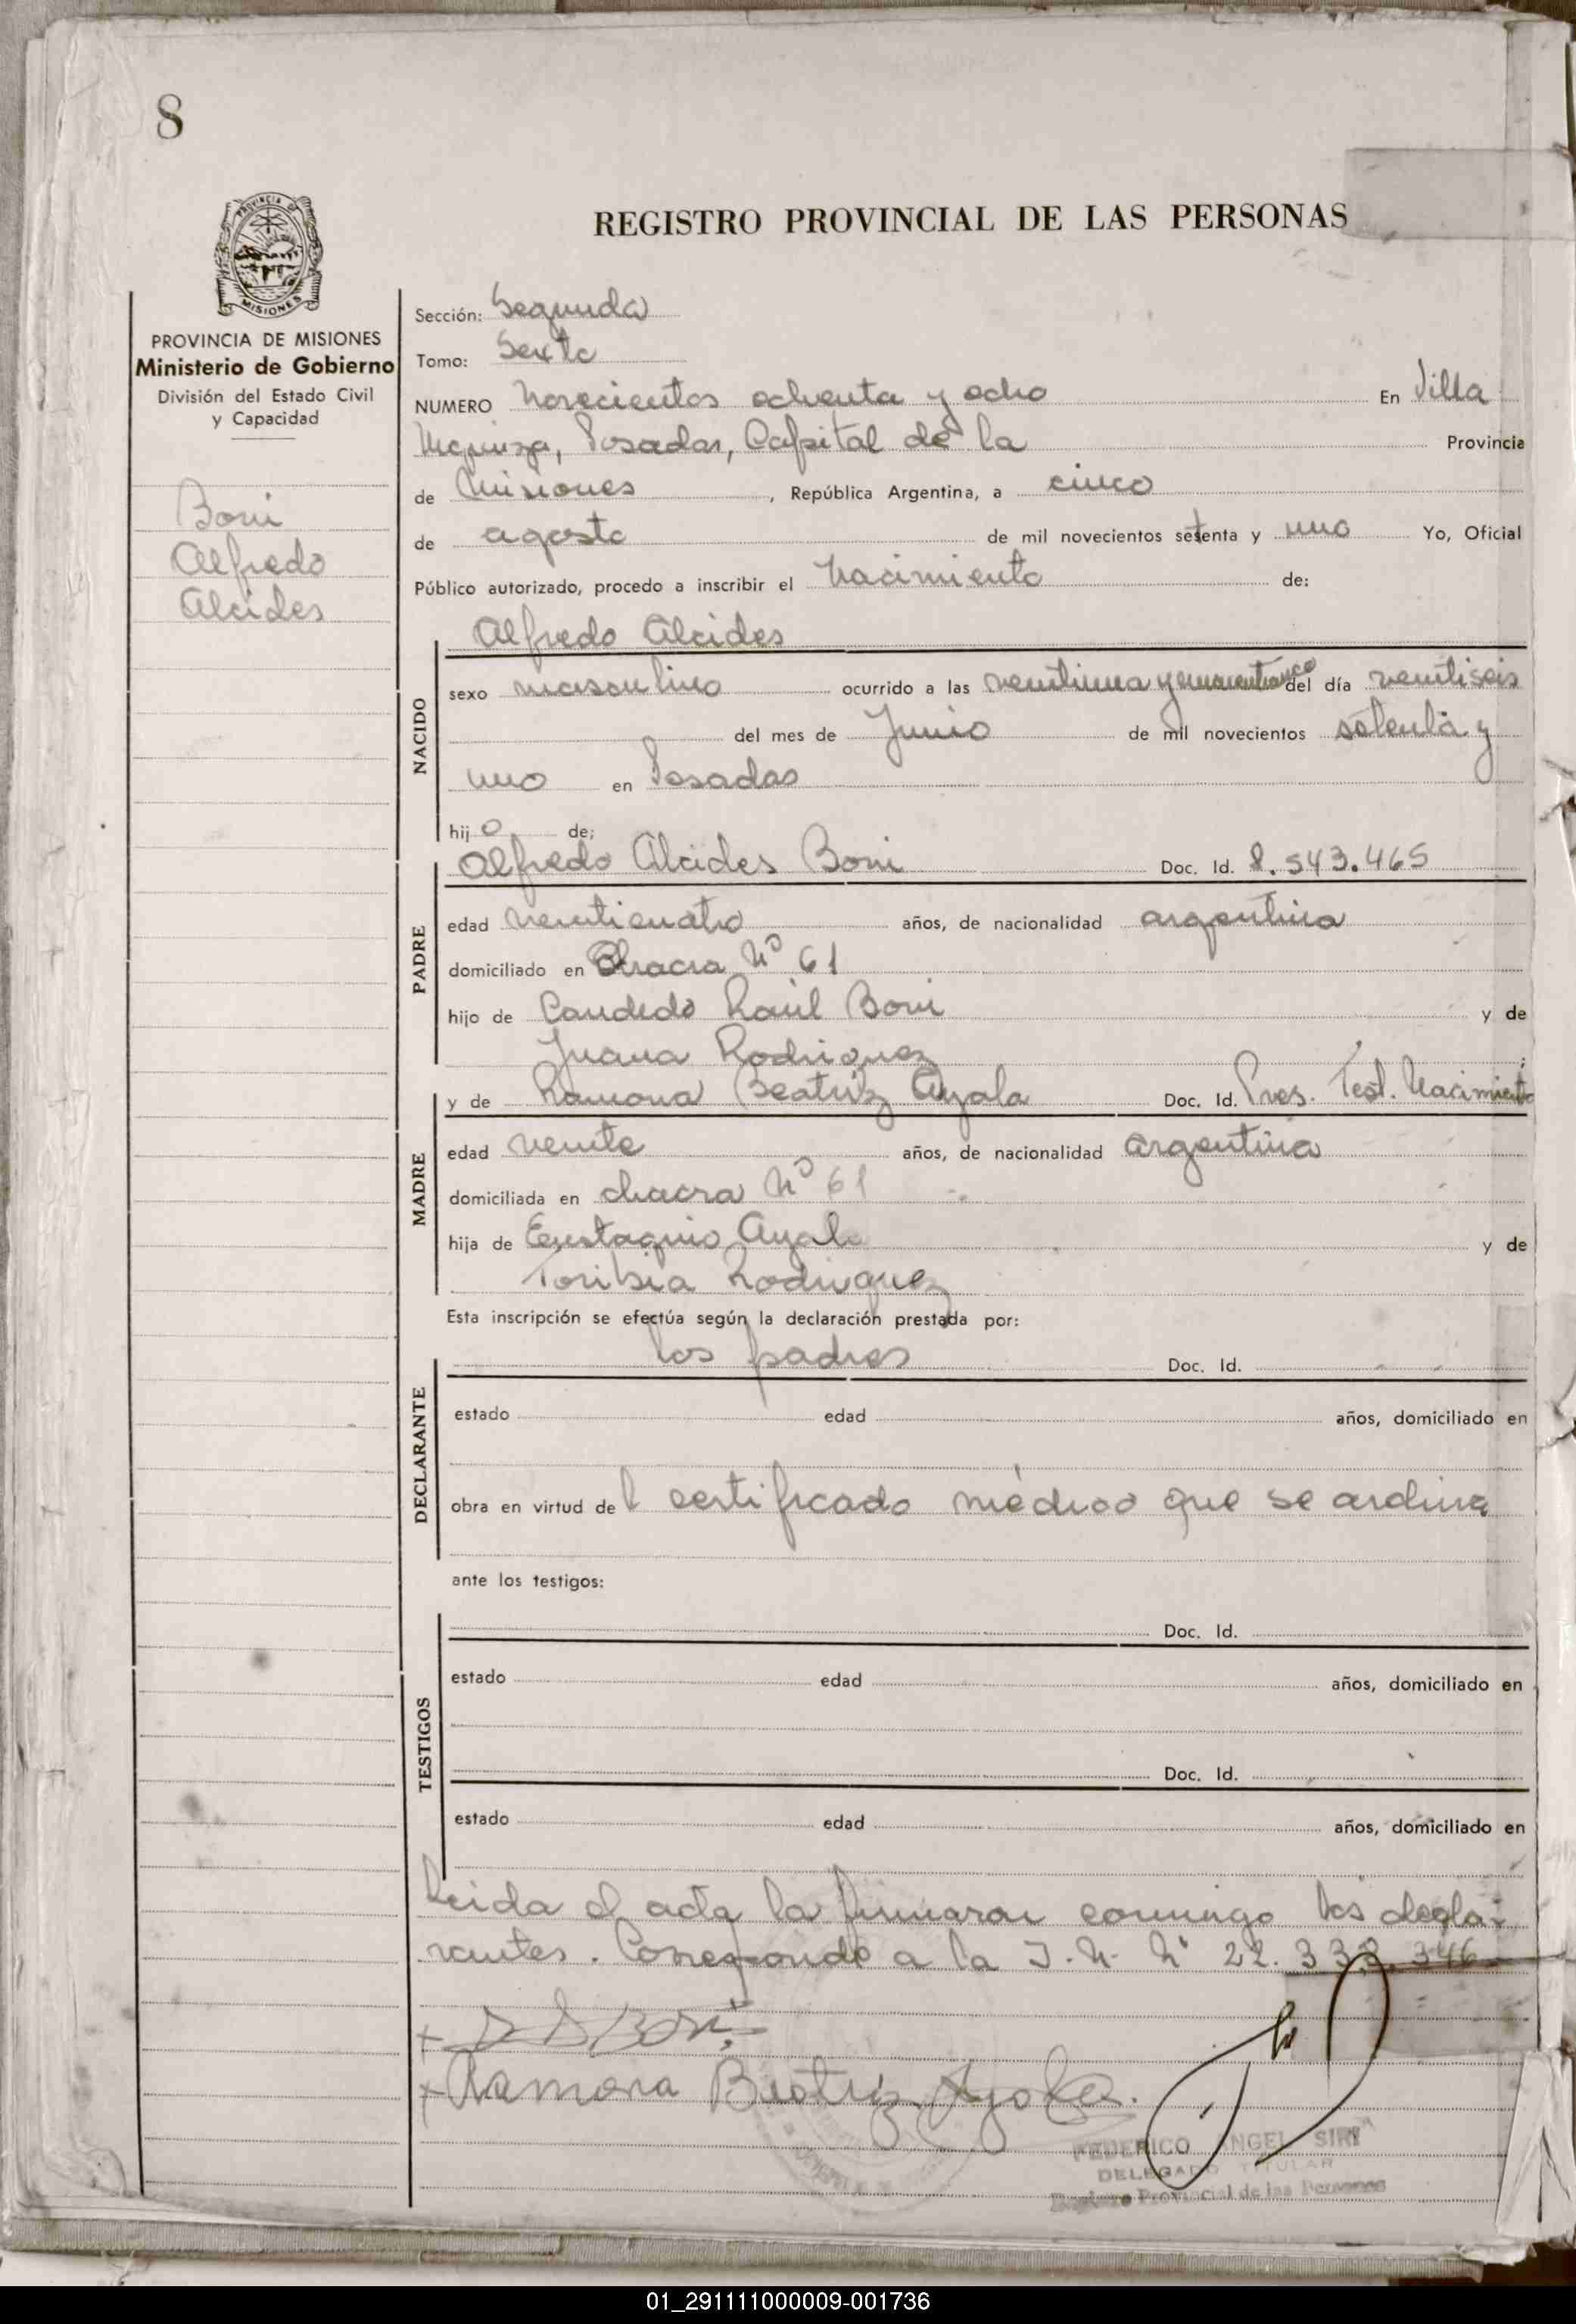 8
PROVINCIA DE
MISIONES
REGISTRO PROVINCIAL DE LAS PERSONAS
PROVINCIA DE MISIONES
Ministerio de Gobierno
División del Estado Civil
y Capacidad
Boni
Alfredo
Alcides
Sección: Segunda
Tomo: Sexto
NUMERO Novecientos ochenta y ocho En Villa
Urquiza, Posadas, Capital de la Provincia
de Misiones, República Argentina, a cinco
de agosto de mil novecientos setenta y uno Yo, Oficial
Público autorizado, procedo a inscribir el Nacimiento de:
Alfredo Alcides
NACIDO
sexo masculino ocurrido a las del día ventiseis
del mes de Junio de mil novecientos setenta y
uno en Posadas
hijo de;
Alfredo Alcides Boni Doc. Id. 8.543.465
PADRE
edad venticuatro años, de nacionalidad argentina
domiciliado en Chacra Nº 61
hijo de Candedo Raúl Boni y de
Juana Rodriguez;
y de Ramona Beatriz Ayala Doc. Id. Pres. Test. Nacimiento
MADRE
edad vente años, de nacionalidad argentina
domiciliada en chacra Nº 61
hija de Eustaquio Ayala y de
Toribia Rodriguez
Esta inscripción se efectúa según la declaración prestada por:
los padres Doc. Id.
DECLARANTE
estado edad años, domiciliado en
obra en virtud del certificado médico que se archiva
ante los testigos:
Doc. Id.
TESTIGOS
estado edad años, domiciliado en
Doc. Id.
estado edad años, domiciliado en
Leida el acta la firmaron conmigo los decla-
rantes. Corresponde a la I. N. Nº 22.333.346
x Boni
x Ramona Beatriz Ayala.
FEDERICO ANGEL SIRI
DELEGADO TITULAR
Registro Provincial de las Personas
01_291111000009-001736